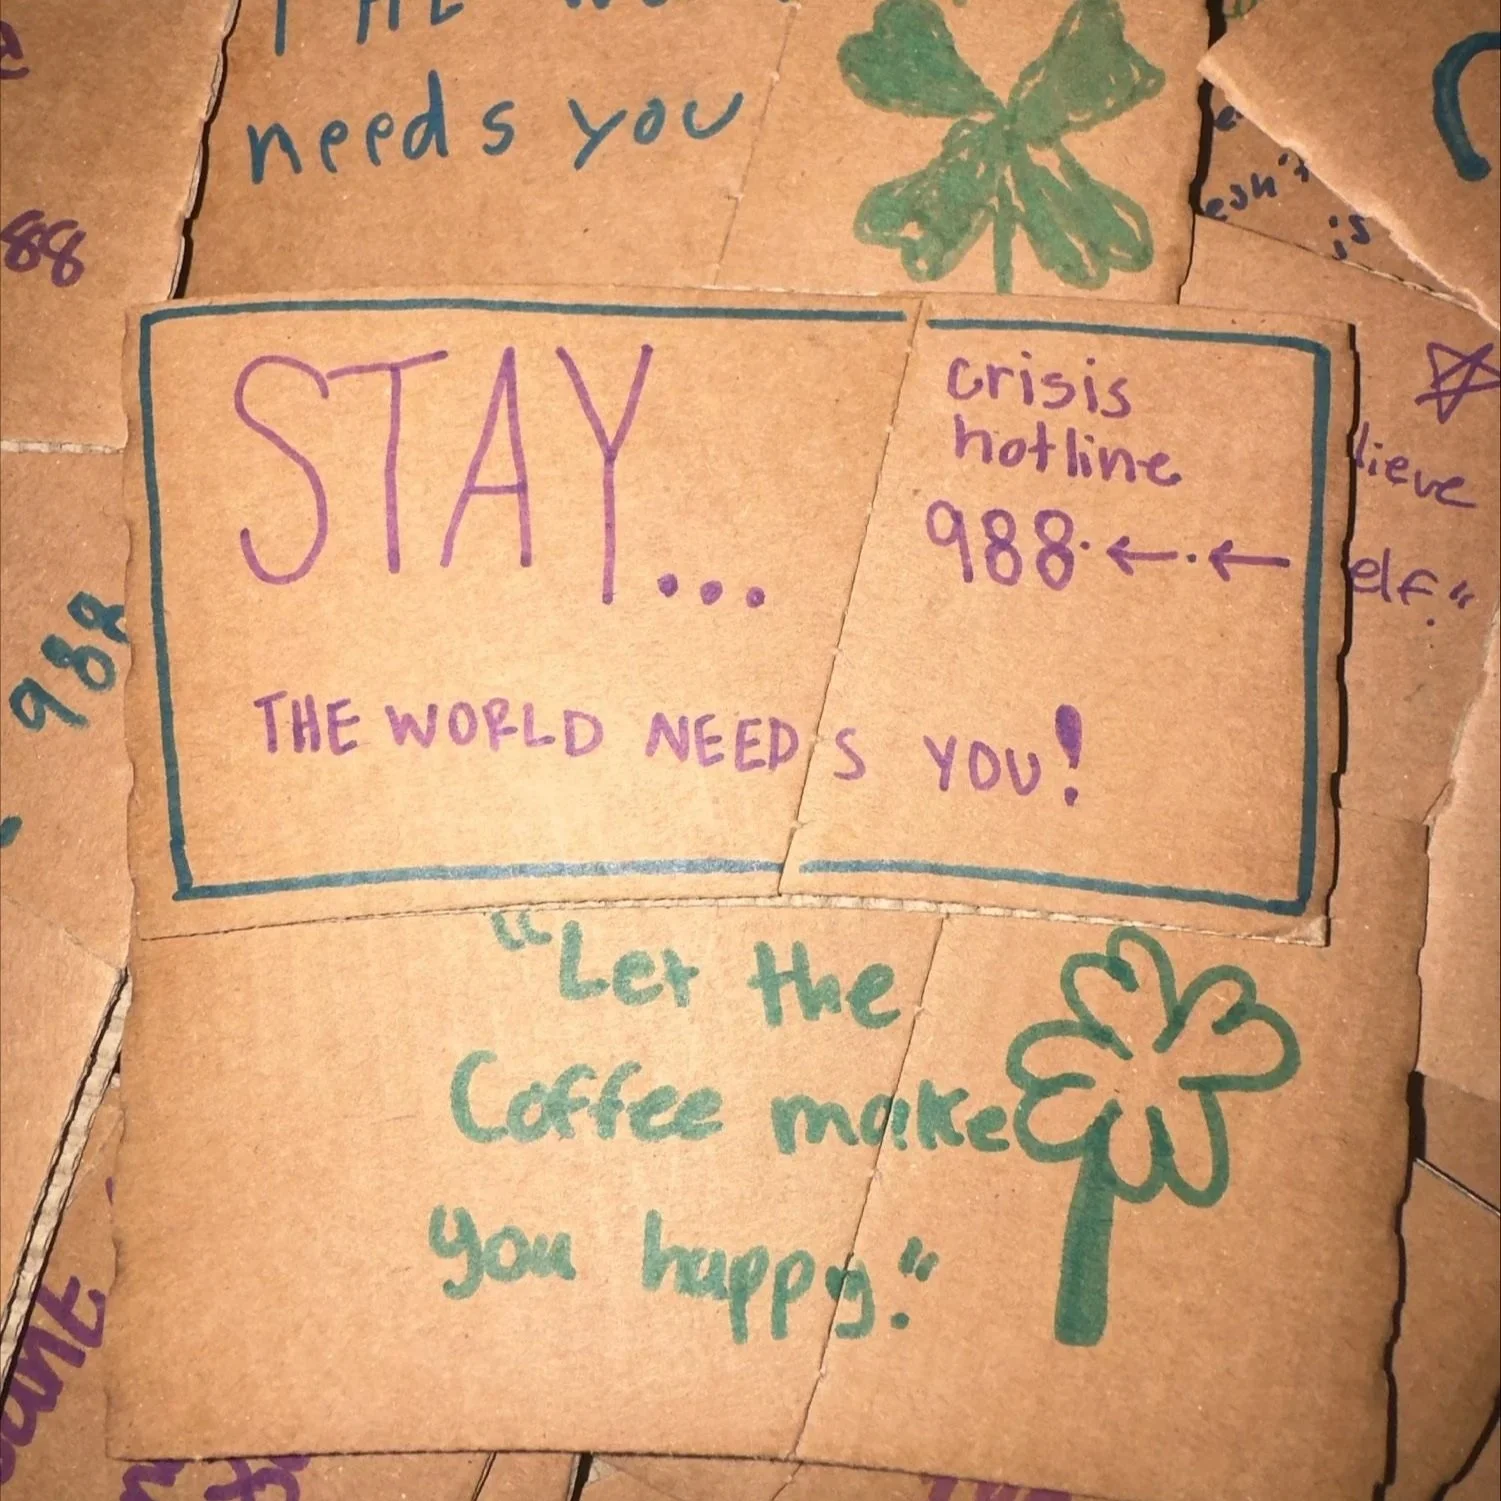 needs you
88
is
STAY...
crisis
hotline
988.←.←
THE WORLD NEEDS YOU!
lieve
elf."
988
"Let the
Coffee make
you happy."